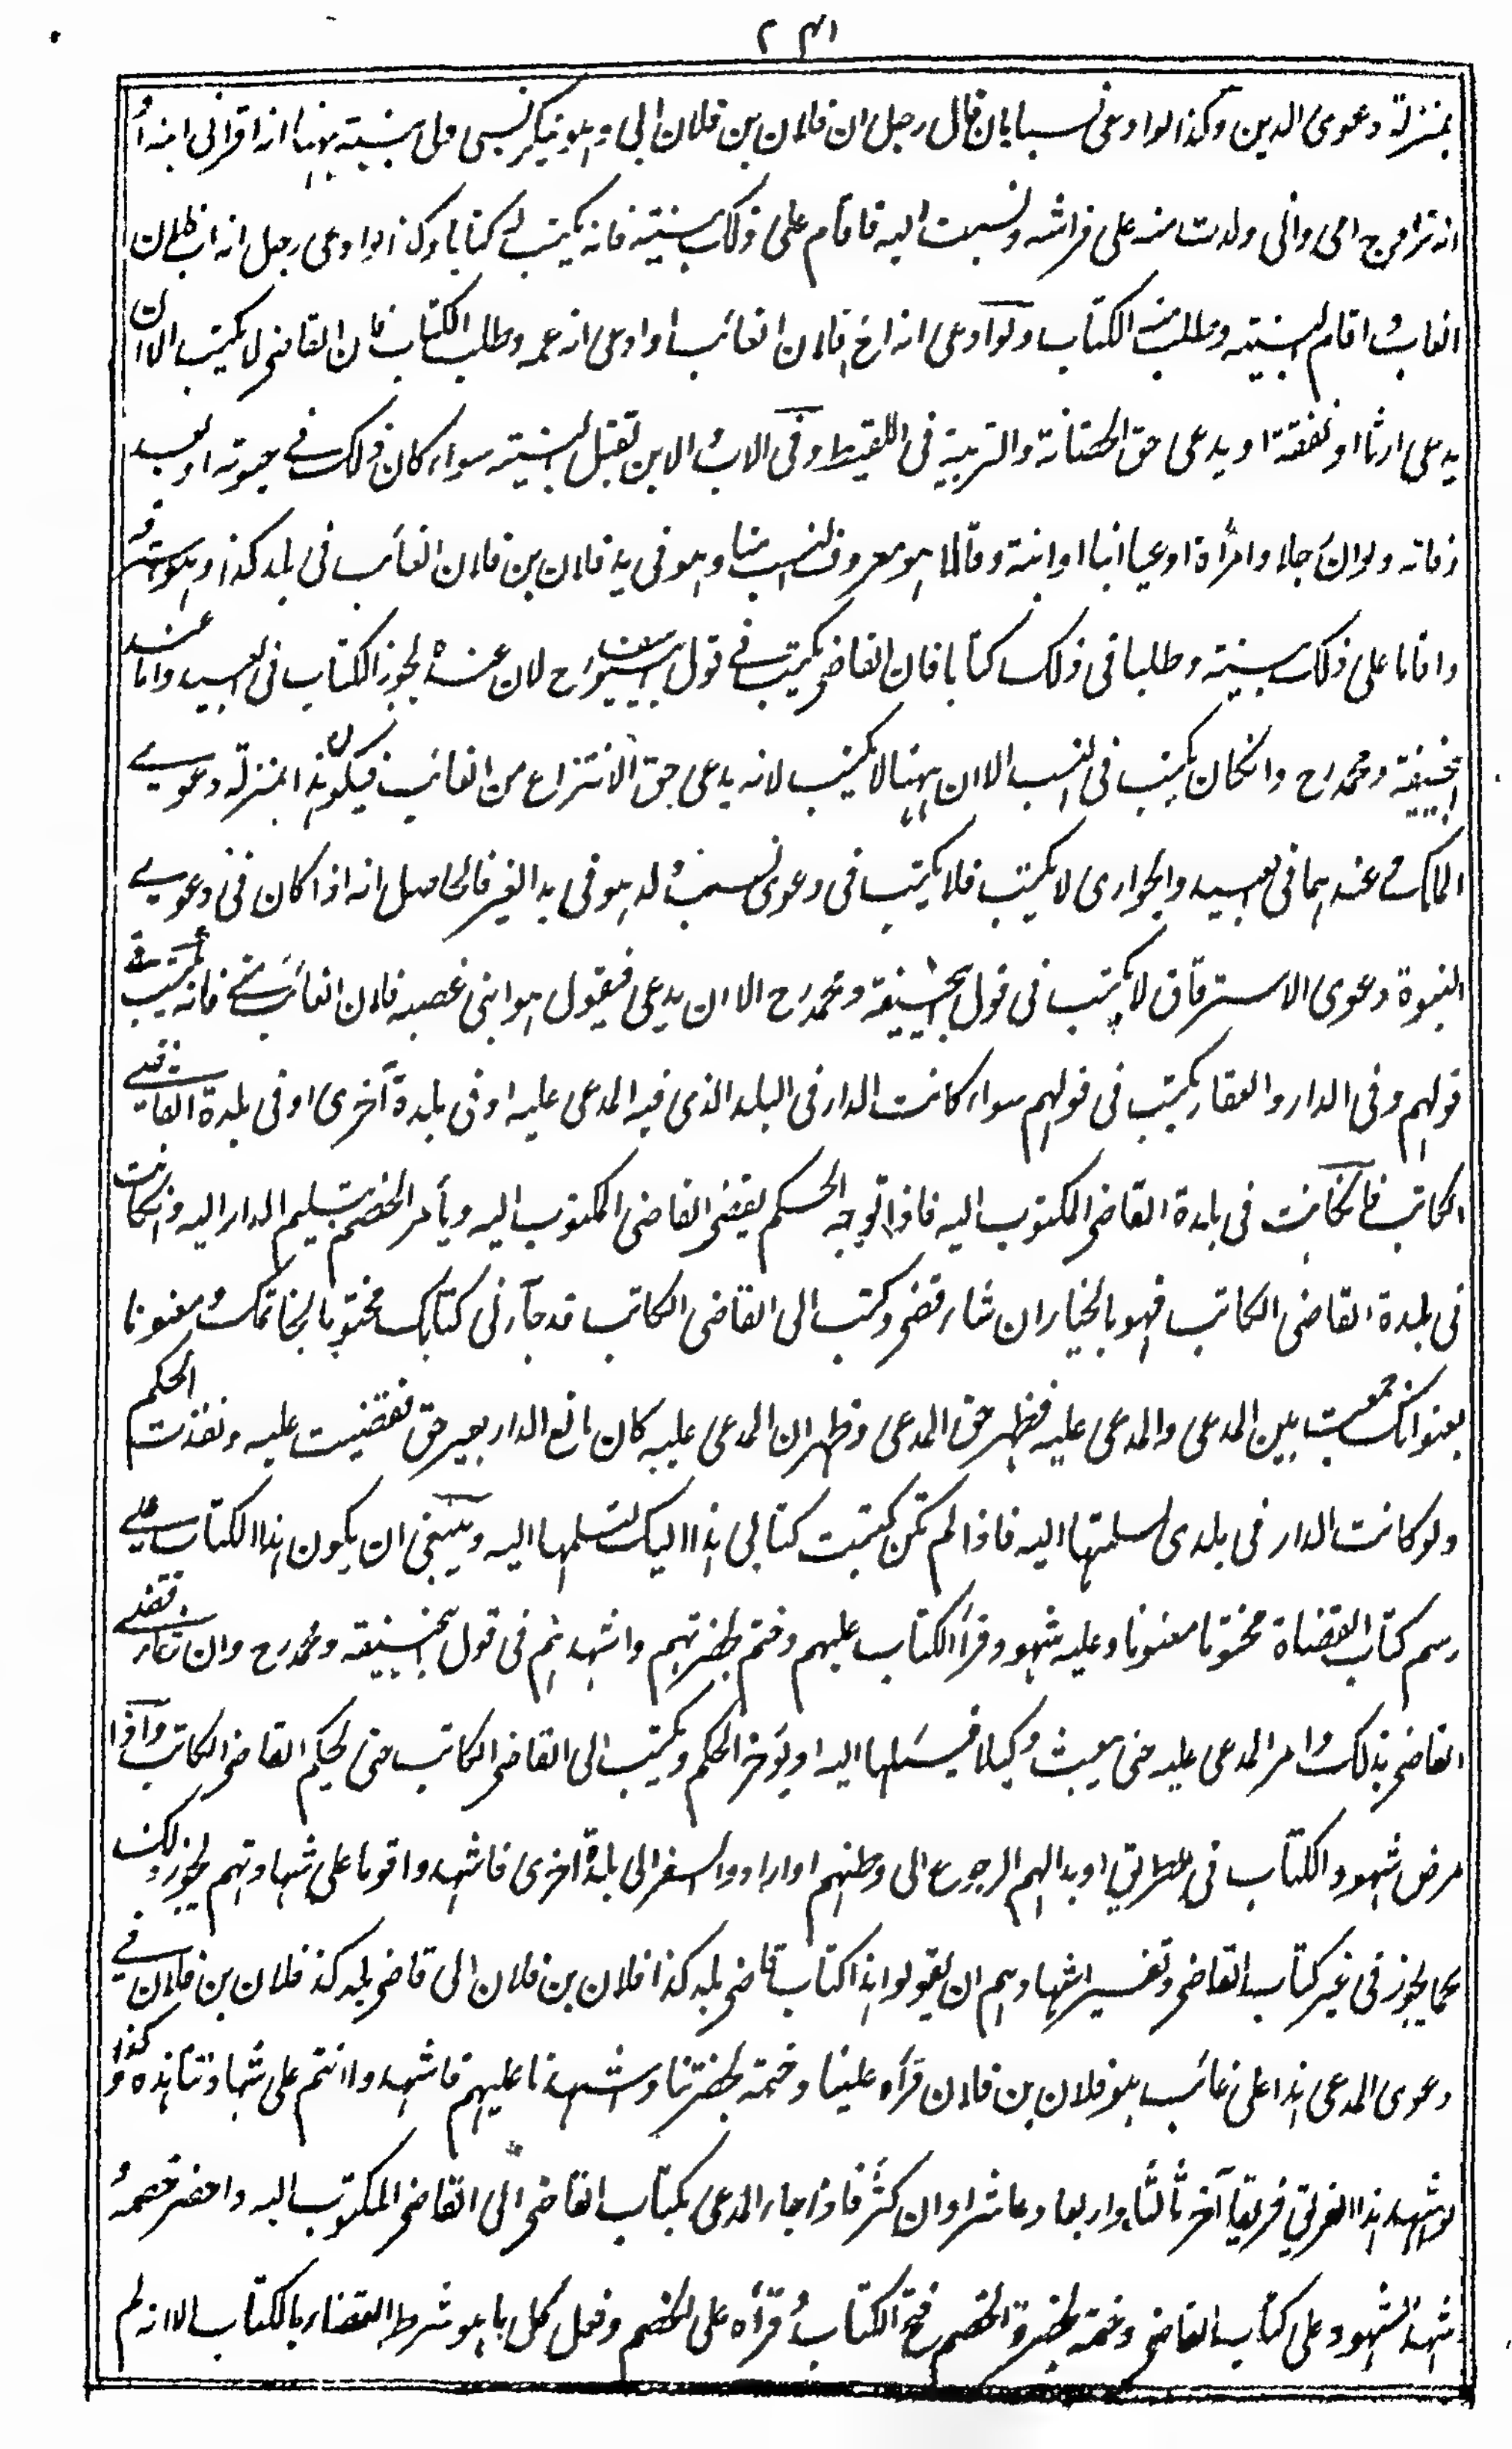 ٢٤١
بمنزلة دعوى الدين وكذا لو ادعى نسبا بان قال رجل ان فلان بن فلان ابى وهو ينكر نسبى ولى بينة ههنا انه اقر انى ابنه او
انه تزوج امى وانى ولدت منه على فراشه ونسبت اليه فاقام على ذلك بينة فانه يكتب له كتابا وكذا لو ادعى رجل انه اب فلان
الغائب واقام البينة وطلب منه الكتاب ولو ادعى انه اخ فلان الغائب او ادعى انه عمه وطلب الكتاب فان القاضى لا يكتب الا ان
يدعى ارثا او نفقة او يدعى حق الحضانة والتربية فى اللقيط وفى الاب والابن تقبل البينة سواء كان ذلك فى حيوته او بعد
وفاته ولو ان رجلا وامرأة ادعيا ابنا او ابنة وقالا هو معروف النسب منا وهو فى يد فلان بن فلان الغائب فى بلد كذا وهو يسترقه
واقاما على ذلك بينة وطلبا فى ذلك كتابا فان القاضى يكتب فى قول ابييوسف رح لان عنده يجوز الكتاب فى العبيد واما عند
ابيحنيفة ومحمد رح وانكان يكتب فى النسب الا ان ههنا لا يكتب لانه يدعى حق الانتزاع من الغائب فيكون هذا بمنزلة دعوى
الملك وعندهما فى العبيد والجوارى لا يكتب فلا يكتب فى دعوى نسب ولد هو فى يد الغير فالحاصل انه اذا كان فى دعوى
البنوة دعوى الاسترقاق لا يكتب فى قول ابيحنيفة ومحمد رح الا ان يدعى فيقول هو ابنى غصبه فلان الغائب منى فانه يكتب فى
قولهم وفى الدار والعقار يكتب فى قولهم سواء كانت الدار فى البلد الذى فيه المدعى عليه او فى بلدة اخرى او فى بلدة القاضى
الكاتب فانكانت فى بلدة القاضى المكتوب اليه فاذا توجه الحكم يقضى القاضى المكتوب اليه ويأمر الخصم بتسليم الدار اليه وانكانت
فى بلدة القاضى الكاتب فهو بالخيار ان شاء قضى وكتب الى القاضى الكاتب قد جاءنى كتابك مختوما بخاتمك ومعنونا
بعنوانك فجمعت بين المدعى والمدعى عليه فظهر حق المدعى وظهر ان المدعى عليه كان مانع الدار بغير حق فقضيت عليه ونفذت الحكم
ولو كانت الدار فى بلدى لسلمتها اليه فاذا لم تكن كتبت كتابى هذا اليك لتسلمها اليه وينبغى ان يكون هذا الكتاب على
رسم كتاب القضاة مختوما معنونا وعليه شهود وقرأ الكتاب عليهم وختم بحضرتهم واشهدهم فى قول ابيحنيفة ومحمد رح وان شاء قضى
القاضى بذلك وامر المدعى عليه حتى يبعث وكيلا فيسلمها اليه او يؤخر الحكم ويكتب الى القاضى الكاتب حتى يحكم القاضى الكاتب واذا
مرض شهود الكتاب فى الطريق او بدا لهم الرجوع الى وطنهم او ارادوا السفر الى بلدة اخرى فاشهدوا قوما على شهادتهم يجوز ذلك
كما يجوز فى غير كتاب القاضى وتفسير اشهادهم ان يقولوا هذا كتاب قاضى بلد كذا فلان بن فلان الى قاضى بلد كذا فلان بن فلان فى
دعوى المدعى هذا على غائب هو فلان بن فلان قرأه علينا وختمه بحضرتنا واشهدنا عليهم فاشهدوا انتم على شهادتنا هذه وكذا
لو اشهد هذا الفريق فريقا آخر ثالثا ورابعا وعاشرا وان كثر فاذا جاء المدعى بكتاب القاضى الى القاضى المكتوب اليه واحضر خصمه و
شهد الشهود على كتاب القاضى وختمه بحضرة الخصم فتح الكتاب وقرأه على الخصم وفعل كل ما هو شرط القضاء بالكتاب الا انه لم